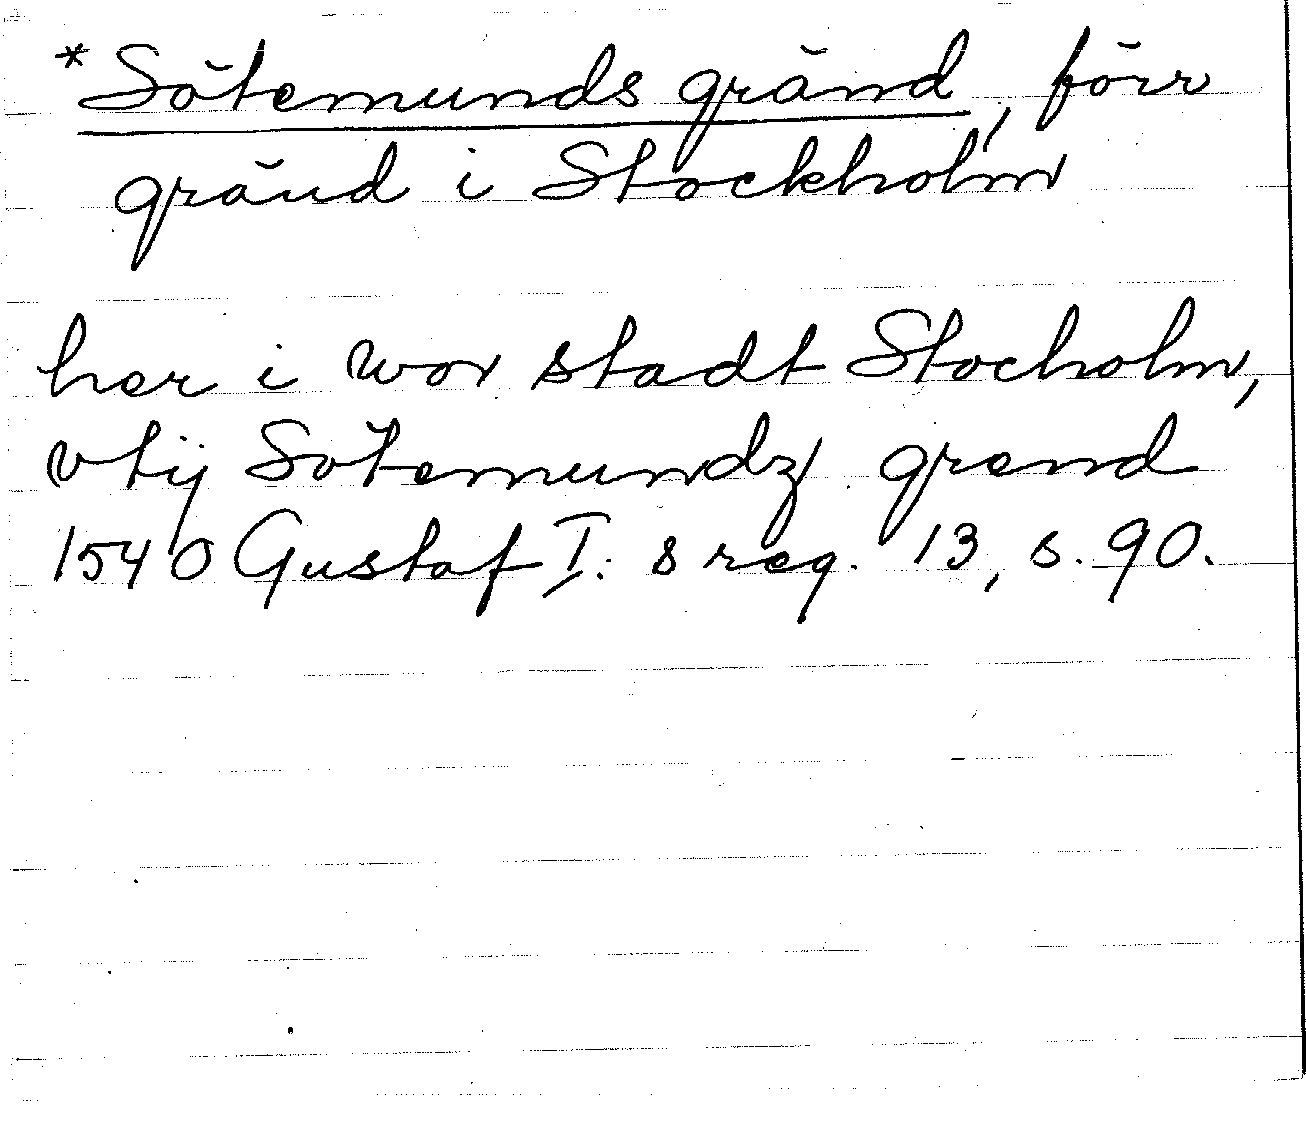 *Sötemunds gränd, förr
gränd i Stockholm
her i wor stadt Stocholm,
vtij Sötemundz grend
1540 Gustaf I:s reg. 13, s. 90.